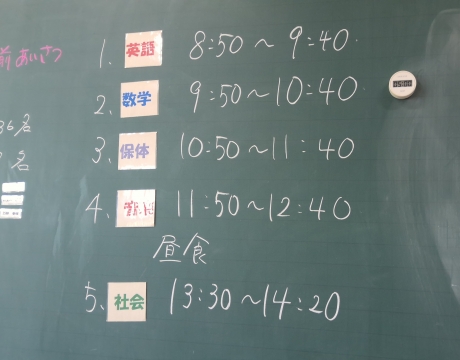 前あいさつ
1. 英語 8:50〜9:40
2. 数学 9:50〜10:40
36名
3. 保体 10:50〜11:40
名
4. 11:50〜12:40
昼食
5. 社会 13:30〜14:20